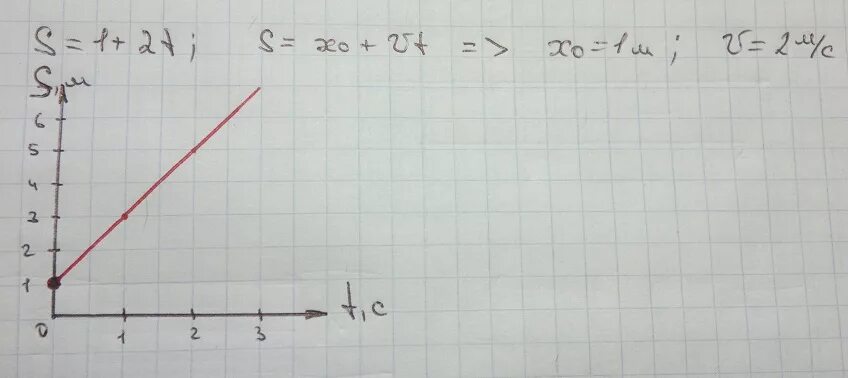 S = 1 + 2t; S = x₀ + vt => x₀ = 1м; v = 2 м/с
S, м
6
5
4
3
2
1
0
1 2 3
t, с